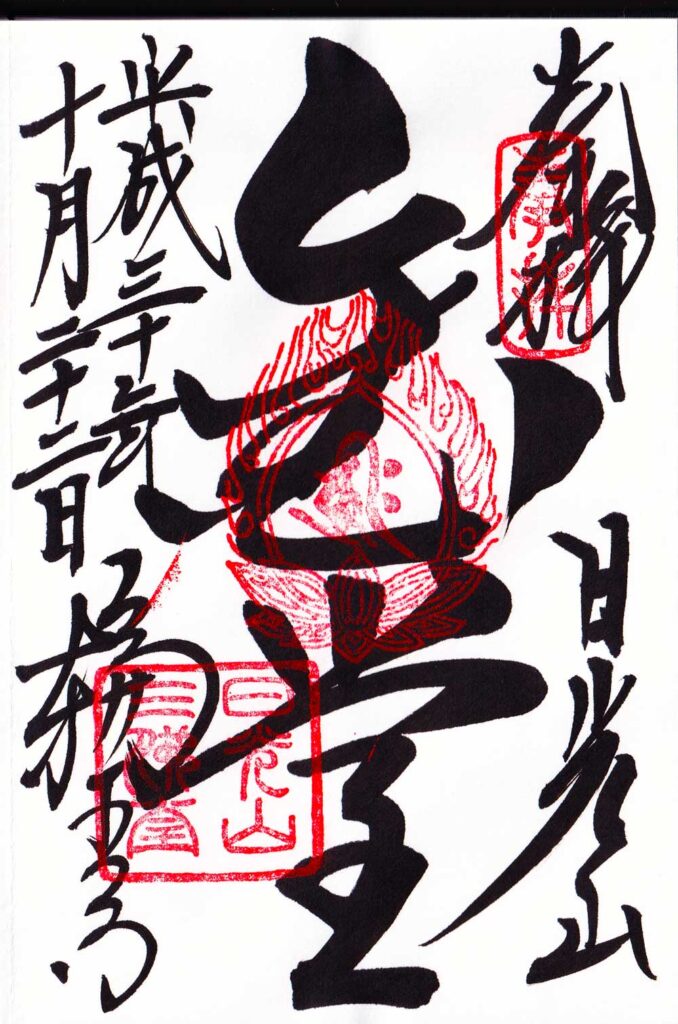 奉拝
日光山
金堂
平成三十年
十月二十二日
輪王寺
日光山
三佛堂